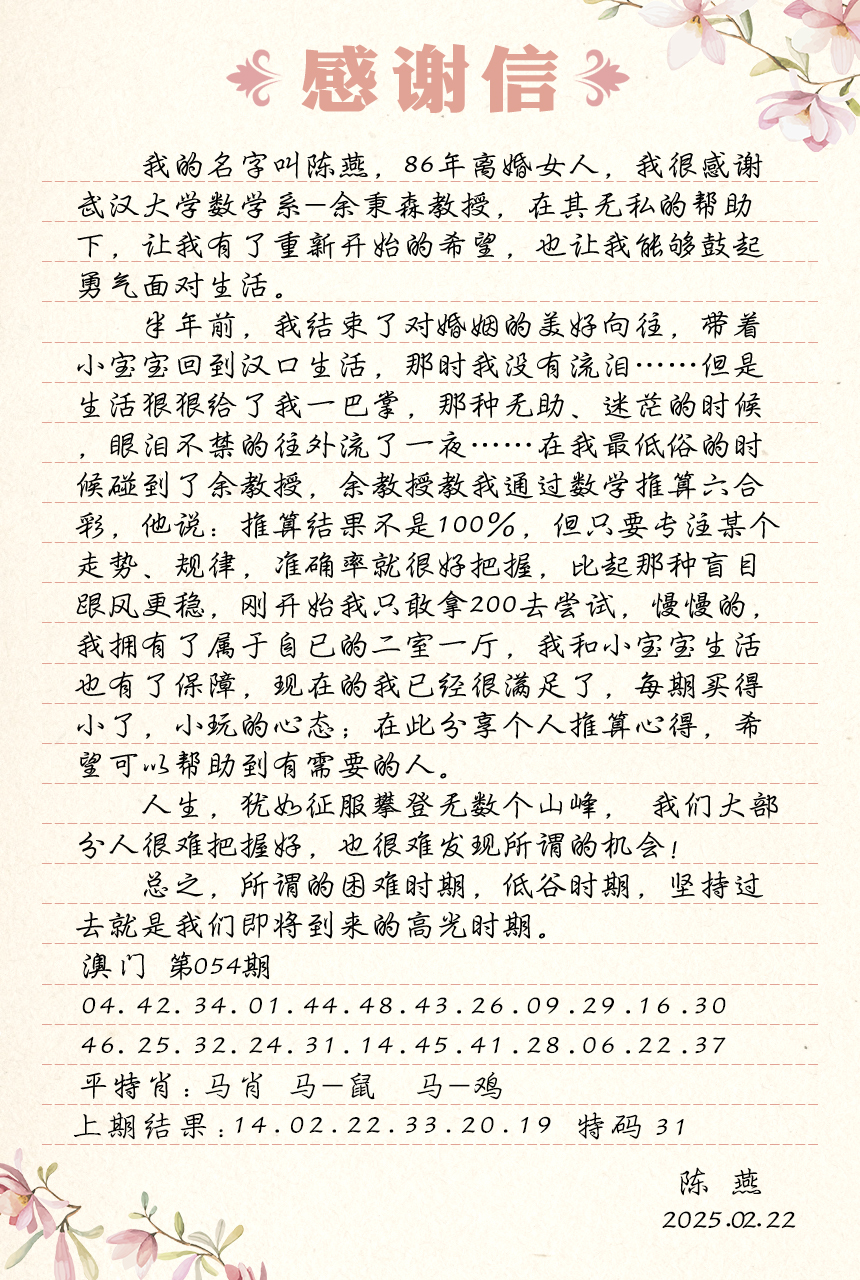 感谢信
我的名字叫陈燕，86年离婚女人，我很感谢
武汉大学数学系—余秉森教授，在其无私的帮助
下，让我有了重新开始的希望，也让我能够鼓起
勇气面对生活。
半年前，我结束了对婚姻的美好向往，带着
小宝宝回到汉口生活，那时我没有流泪……但是
生活狠狠给了我一巴掌，那种无助、迷茫的时候
，眼泪不禁的往外流了一夜……在我最低俗的时
候碰到了余教授，余教授教我通过数学推算六合
彩，他说：推算结果不是100%，但只要专注某个
走势、规律，准确率就很好把握，比起那种盲目
跟风更稳，刚开始我只敢拿200去尝试，慢慢的，
我拥有了属于自已的二室一厅，我和小宝宝生活
也有了保障，现在的我已经很满足了，每期买得
小了，小玩的心态；在此分享个人推算心得，希
望可以帮助到有需要的人。
人生，犹如征服攀登无数个山峰， 我们大部
分人很难把握好，也很难发现所谓的机会！
总之，所谓的困难时期，低谷时期，坚持过
去就是我们即将到来的高光时期。
澳门 第054期
04.42.34.01.44.48.43.26.09.29.16.30
46.25.32.24.31.14.45.41.28.06.22.37
平特肖：马肖 马—鼠 马—鸡
上期结果：14.02.22.33.20.19 特码 31
陈 燕
2025.02.22